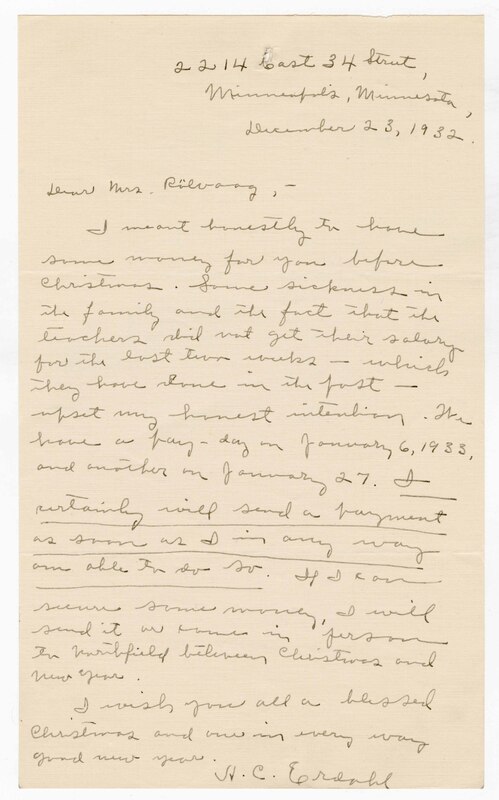 2214 East 34 Street,
Minneapolis, Minnesota,
December 23, 1932.
Dear Mrs. Rölvaag, –
I meant honestly to have
some money for you before
Christmas. Some sickness in
the family and the fact that the
teachers did not get their salary
for the last two weeks – which
they have done in the past –
upset my honest intention. We
have a pay-day on January 6, 1933,
and another on January 27. I
certainly will send a payment
as soon as I in any way
am able to do so. If I can
secure some money, I will
send it or come in person
to Northfield between Christmas and
New Year.
I wish you all a blessed
Christmas and one in every way
good new year.
H. C. Erdahl